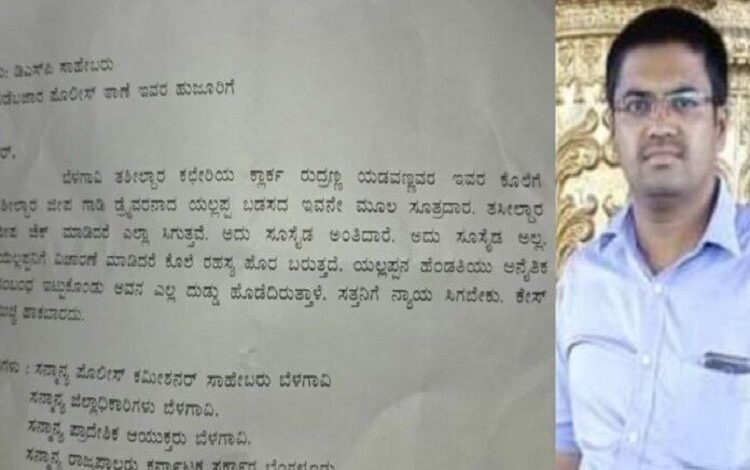 ಡಿಎಸ್‌ಪಿ ಸಾಹೇಬರು
ಪೊಲೀಸ್ ಠಾಣೆ ಇವರ ಹುಜೂರಿಗೆ
ಬೆಳಗಾವಿ ತಶೀಲ್ದಾರ ಕಛೇರಿಯ ಕ್ಲಾರ್ಕ ರುದ್ರಣ್ಣ ಯಡವಣ್ಣವರ ಇವರ ಕೊಲೆಗೆ
ಜೀಪ ಗಾಡಿ ಡ್ರೈವರನಾದ ಯಲ್ಲಪ್ಪ ಬಡಸದ ಇವನೇ ಮೂಲ ಸೂತ್ರದಾರ. ತಸೀಲ್ದಾರ
ಚೆಕ್ ಮಾಡಿದರೆ ಎಲ್ಲಾ ಸಿಗುತ್ತವೆ. ಅದು ಸೂಸೈಡ ಅಂತಿದಾರೆ. ಅದು ಸೂಸೈಡ ಅಲ್ಲ.
ವಿಚಾರಣೆ ಮಾಡಿದರೆ ಕೊಲೆ ರಹಸ್ಯ ಹೊರ ಬರುತ್ತದೆ. ಯಲ್ಲಪ್ಪನ ಹೆಂಡತಿಯು ಅನೈತಿಕ
ಇಟ್ಟುಕೊಂಡು ಅವನ ಎಲ್ಲ ದುಡ್ಡು ಹೊಡೆದಿರುತ್ತಾಳೆ. ಸತ್ತನಿಗೆ ನ್ಯಾಯ ಸಿಗಬೇಕು. ಕೇಸ್
ಹಾಕಬಾರದು.
ಸನ್ಮಾನ್ಯ ಪೊಲೀಸ್ ಕಮೀಶನರ್ ಸಾಹೇಬರು ಬೆಳಗಾವಿ
ಸನ್ಮಾನ್ಯ ಜಿಲ್ಲಾಧಿಕಾರಿಗಳು ಬೆಳಗಾವಿ.
ಸನ್ಮಾನ್ಯ ಪ್ರಾದೇಶಿಕ ಆಯುಕ್ತರು ಬೆಳಗಾವಿ.
ಸನ್ಮಾನ್ಯ ರಾಜ್ಯಪಾಲರು ಕರ್ನಾಟಕ ಸರ್ಕಾರ ಬೆಂಗಳೂರು